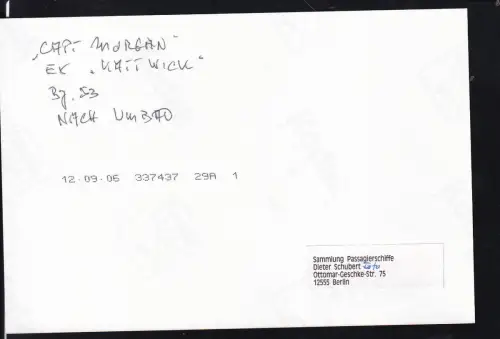 „CAPT. MORGAN"
EX „KATTWICK"
Bj. 53
NACH UMBAU
12·09·06 337437 29A 1
Sammlung Passagierschiffe
Dieter Schubert Foto
Ottomar-Geschke-Str. 75
12555 Berlin